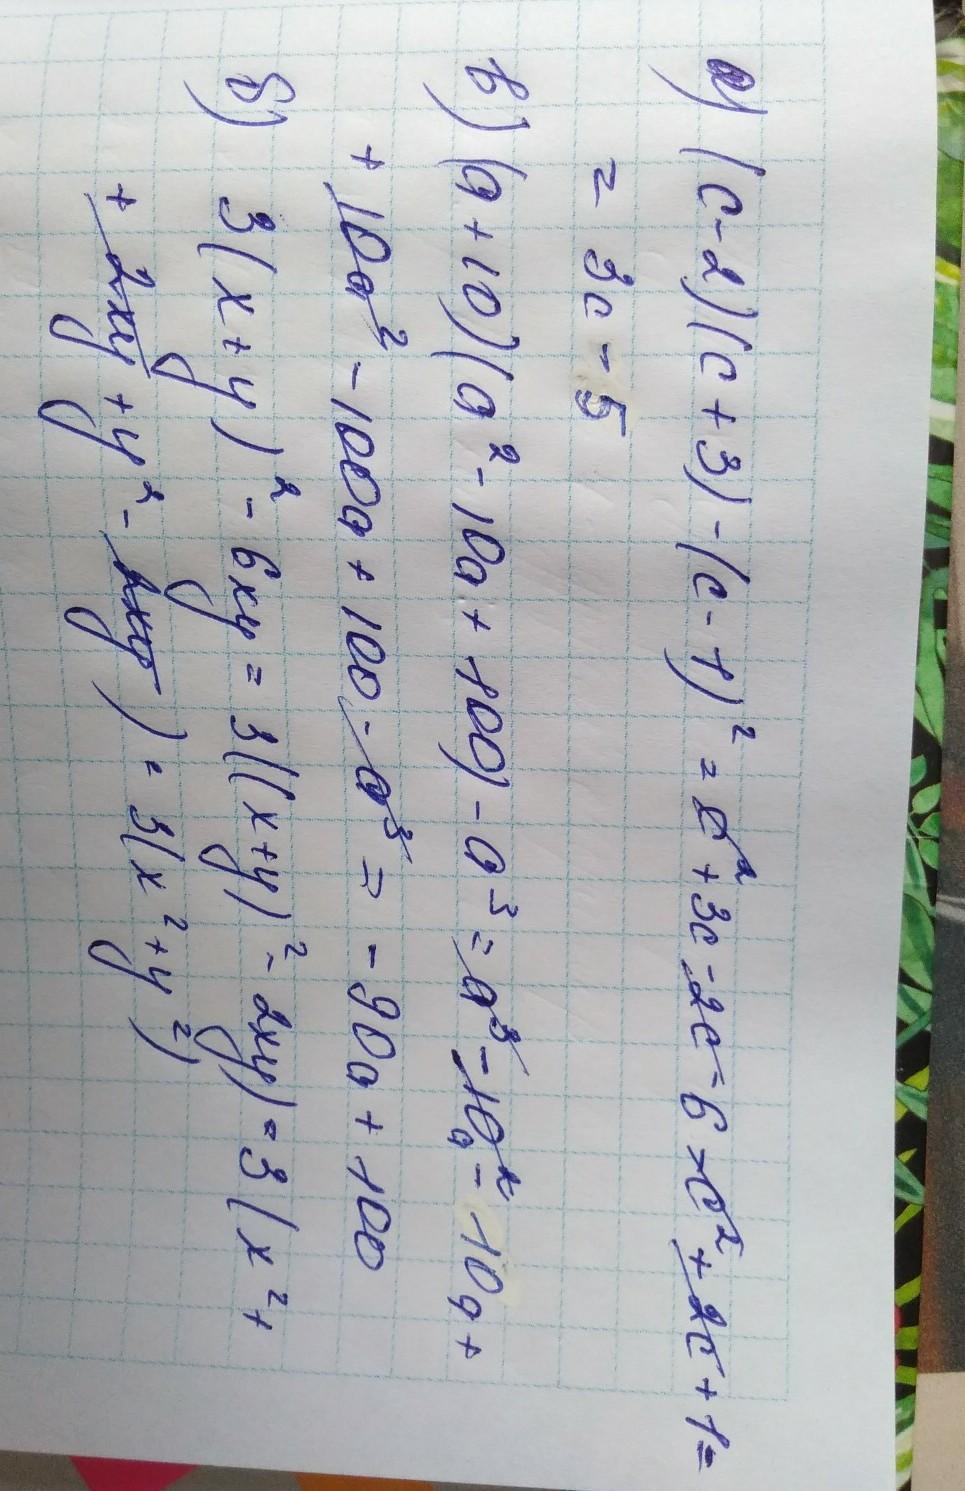 а) (c-2)(c+3)-(c-1)² = c²+3c-2c-6-c²+2c+1=
= 3c-5
в) (a+10)(a²-10a+100)-a³ = a³-10a²-10a+
+10a²-100a+100-a³ = -90a+100
б) 3(x+y)²-6xy = 3((x+y)²-2xy) = 3(x²+
+2xy+y²-2xy) = 3(x²+y²)